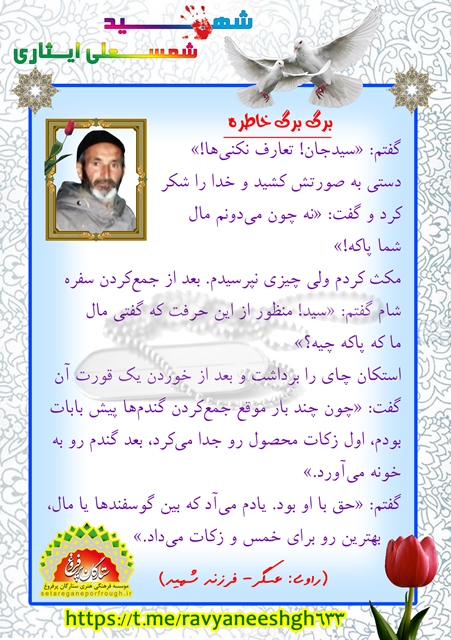 شهید
شمسعلی ایثاری
برگ برگ خاطره
گفتم: «سیدجان! تعارف نکنی‌ها!»
دستی به صورتش کشید و خدا را شکر
کرد و گفت: «نه چون می‌دونم مال
شما پاکه!»
مکث کردم ولی چیزی نپرسیدم. بعد از جمع‌کردن سفره
شام گفتم: «سید! منظور از این حرفت که گفتی مال
ما که پاکه چیه؟»
استکان چای را برداشت و بعد از خوردن یک قورت آن
گفت: «چون چند بار موقع جمع‌کردن گندم‌ها پیش بابات
بودم، اول زکات محصول رو جدا می‌کرد، بعد گندم رو به
خونه می‌آورد.»
گفتم: «حق با او بود. یادم می‌آد که بین گوسفندها یا مال،
بهترین رو برای خمس و زکات می‌داد.»
(راوی: عسگر - فرزند شهید)
ستارگان پرفروغ
موسسه فرهنگی هنری ستارگان پرفروغ
setareganeporfrough.ir
https://t.me/ravyaneeshgh۶۳۳